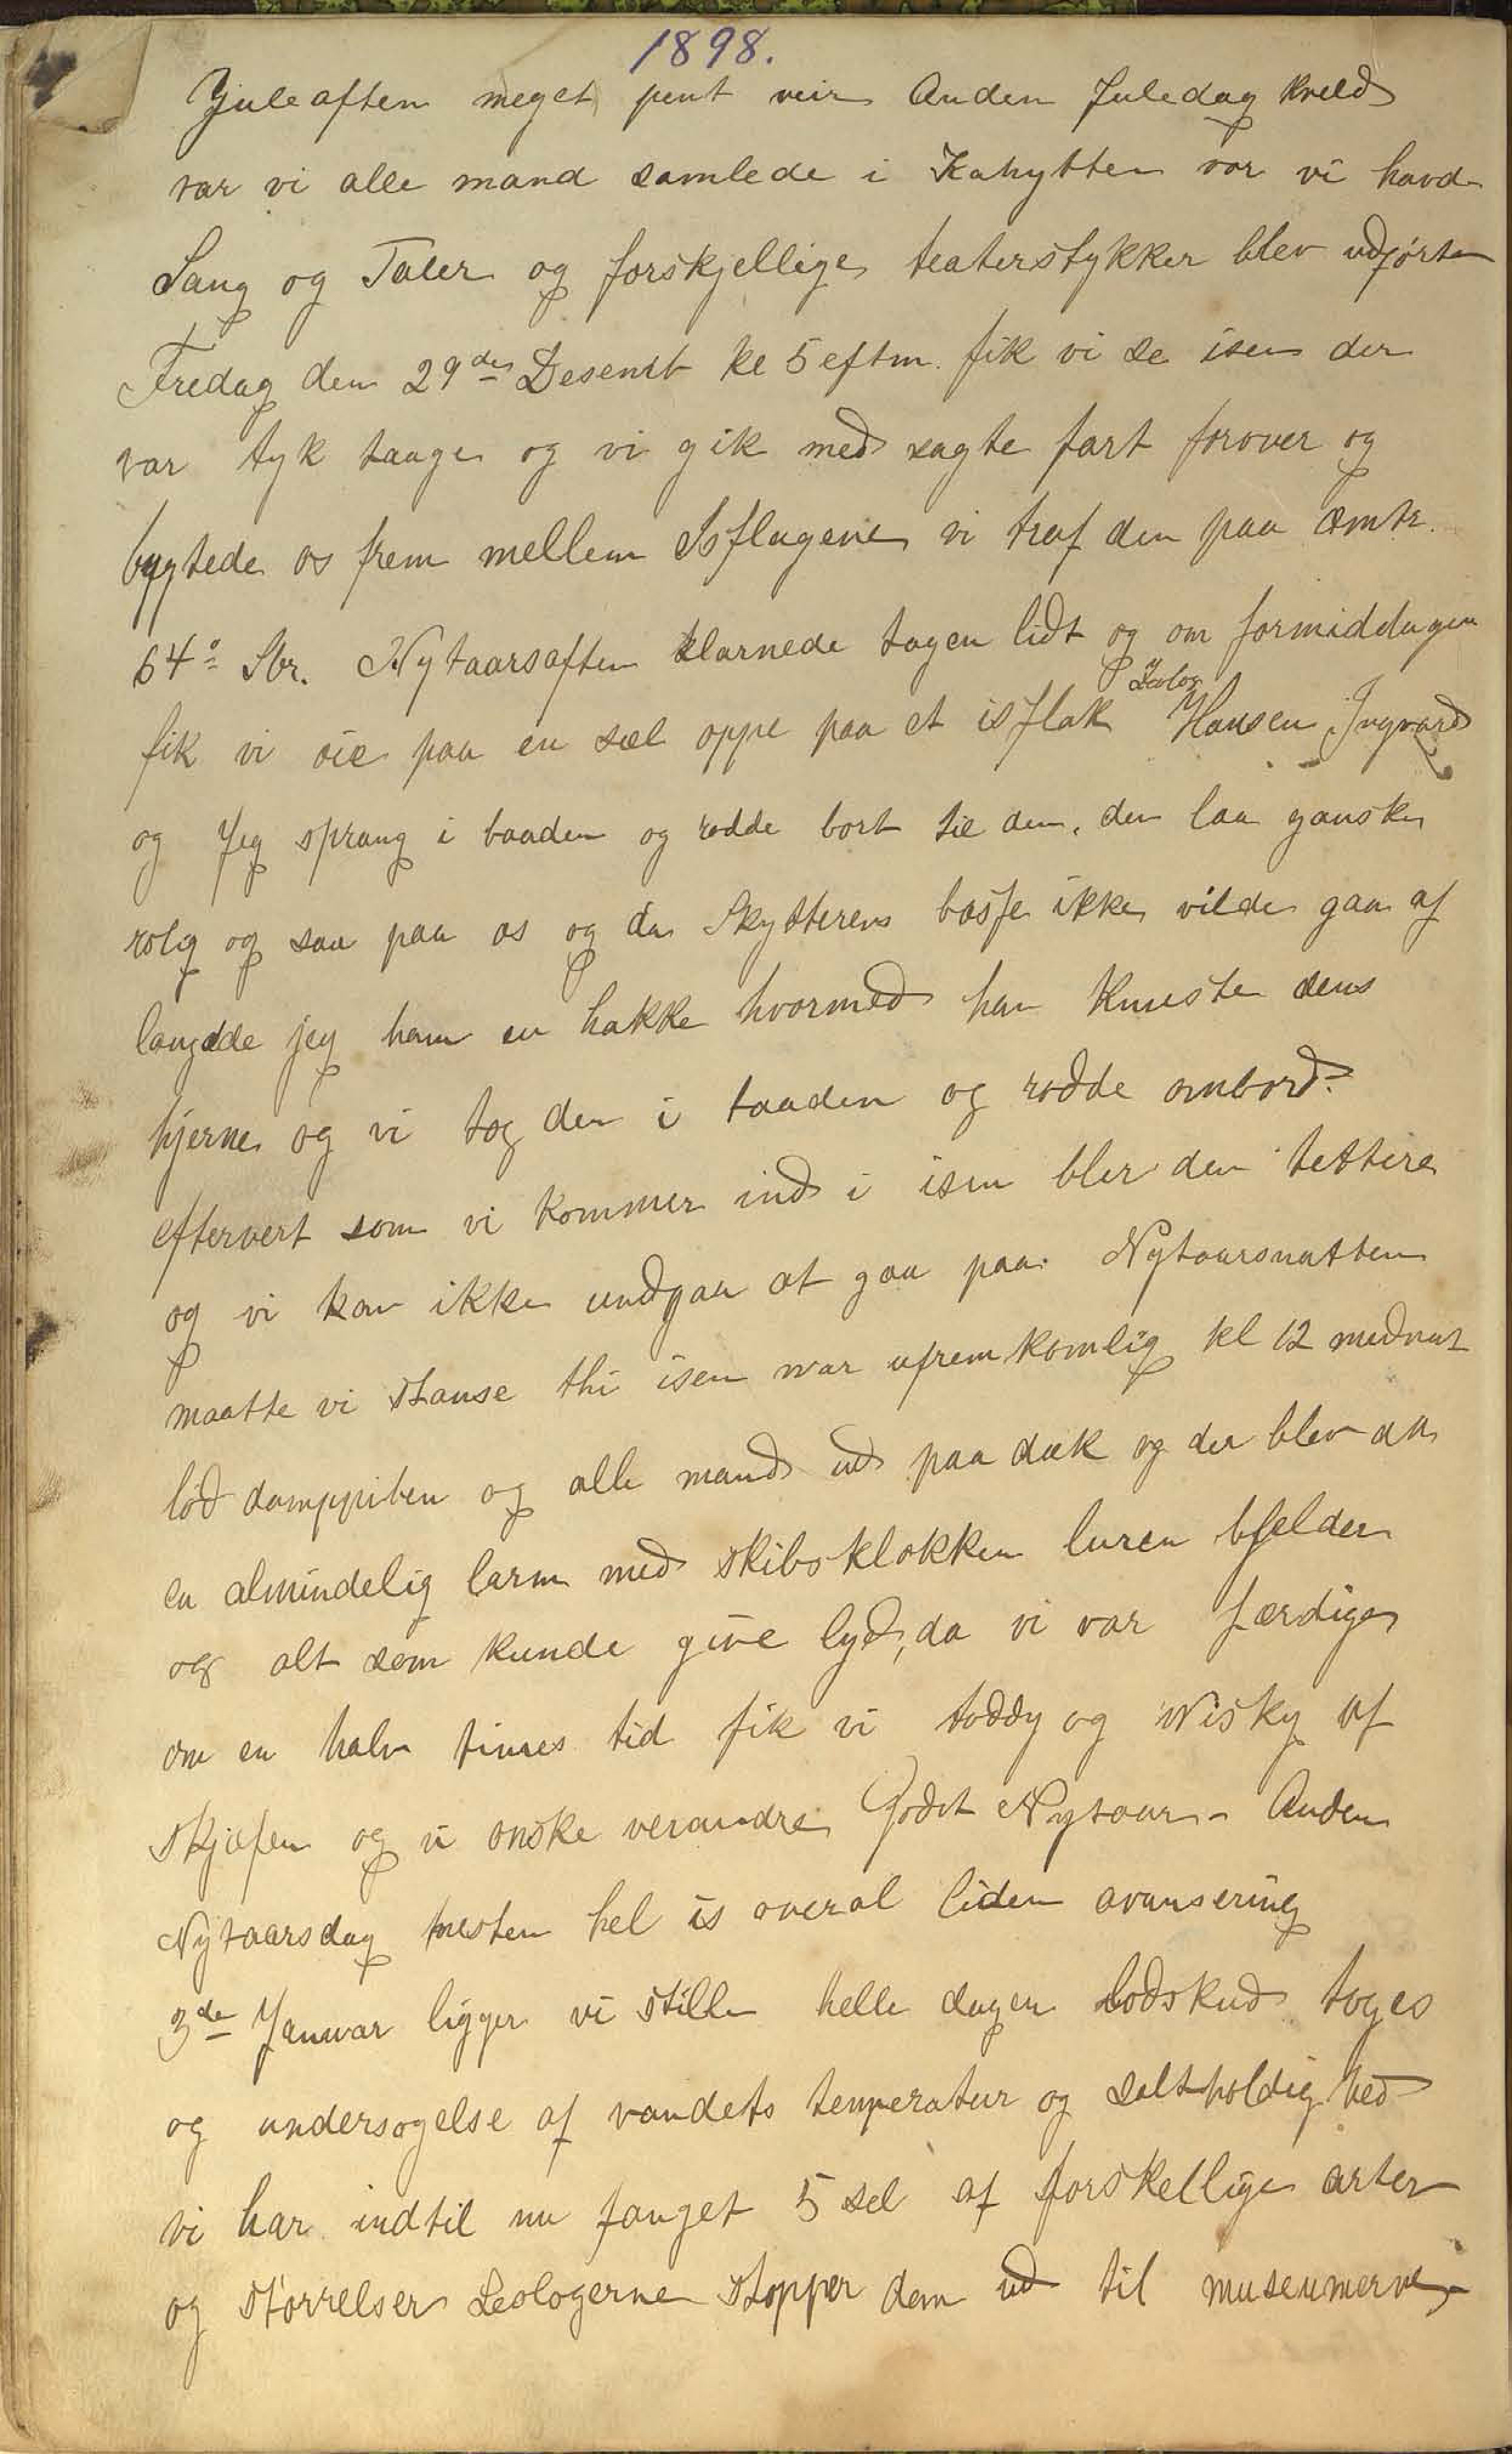 1898.
Juleaften meget pent veir Anden Juledag kveld
var vi alle mand samlede i Kahytten vor vi havde
Sang og Taler og forskjellige teaterstykker blev udførte
Fredag den 29de Desembr kl 5 eftm. fik vi se isen der
var tyk taage og vi gik med sagte fart forover og
bugtede os frem mellem Isflagene vi traf den paa omtr.
64° Sbr. Nytaarsaften klarnede tagen lidt og om formiddagen
fik vi øie paa en sæl oppe paa et isflak Zolog Hansen Ingvard
og Jeg sprang i baaden og rodde bort til den, den laa ganske
rolig og saa paa os og da Skytterens bøsse ikke vilde gaa af
langede jeg ham en hakke hvormed han knuste dens
hjerne og vi tog den i baaden og rodde ombord.
eftervert som vi kommer ind i isen bler den tettere
og vi kan ikke undgaa at gaa paa. Nytaarsnatten
maatte vi stanse thi isen var ufremkomlig kl 12 mednat
lød damppiben og alle mand ud paa dæk og der blev da
en almindelig larm med skibsklokken luren bjelder
og alt som kunde give lyd, da vi var færdige
om en halv times tid fik vi toddy og Wisky af
skjefen og vi ønske verandre Godt Nytaar - Anden
Nytaarsdag mesten hel is overal liden avansering
3de Januar ligger vi stille helle dagen Lodskud toges
og undersøgelse af vandets temperatur og saltholdighed
vi har indtil nu fanget 5 sel af forskellige arter
og størrelser Zeologerne stopper dem ud til museumerne,-